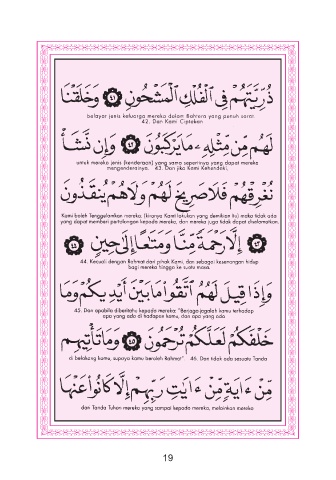 ذُرِّيَّتَهُمْ فِي الْفُلْكِ الْمَشْحُونِ ﴿٤١﴾ وَخَلَقْنَا
belayar jenis keluarga mereka dalam Bahtera yang penuh sarat.
42. Dan Kami Ciptakan
لَهُم مِّن مِّثْلِهِ مَا يَرْكَبُونَ ﴿٤٢﴾ وَإِن نَّشَأْ
untuk mereka jenis (kenderaan) yang sama sepertinya yang dapat mereka
mengenderainya. 43. Dan jika Kami Kehendaki,
نُغْرِقْهُمْ فَلَا صَرِيخَ لَهُمْ وَلَا هُمْ يُنقَذُونَ
Kami boleh Tenggelamkan mereka; (kiranya Kami lakukan yang demikian itu) maka tidak ada
yang dapat memberi pertolongan kepada mereka, dan mereka juga tidak dapat diselamatkan.
﴿٤٣﴾ إِلَّا رَحْمَةً مِّنَّا وَمَتَاعًا إِلَىٰ حِينٍ ﴿٤٤﴾
44. Kecuali dengan Rahmat dari pihak Kami, dan sebagai kesenangan hidup
bagi mereka hingga ke suatu masa.
وَإِذَا قِيلَ لَهُمُ اتَّقُوا مَا بَيْنَ أَيْدِيكُمْ وَمَا
45. Dan apabila diberitahu kepada mereka: "Berjaga-jagalah kamu terhadap
apa yang ada di hadapan kamu, dan apa yang ada
خَلْفَكُمْ لَعَلَّكُمْ تُرْحَمُونَ ﴿٤٥﴾ وَمَا تَأْتِيهِم
di belakang kamu, supaya kamu beroleh Rahmat". 46. Dan tidak ada sesuatu Tanda
مِّنْ ءَايَةٍ مِّنْ ءَايَٰتِ رَبِّهِمْ إِلَّا كَانُوا عَنْهَا
dari Tanda Tuhan mereka yang sampai kepada mereka, melainkan mereka
19